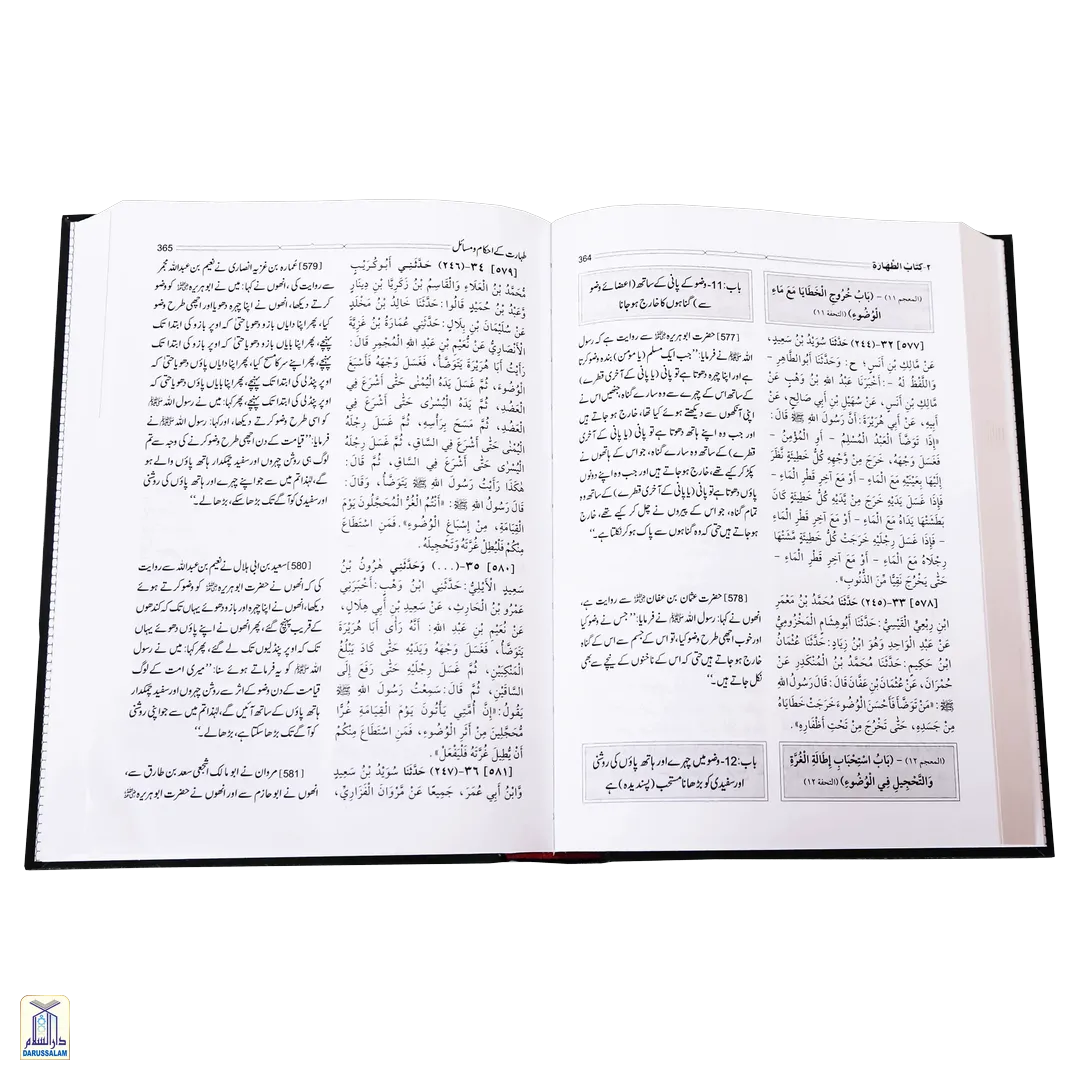 364
٢-كتابُ الطّهارة
(المعجم ١١) - (بَابُ خُرُوجِ الْخَطَايَا مَعَ مَاءِ
الْوُضُوءِ) (التحفة ١١)
[٥٧٧] ٣٢-(٢٤٤) حَدَّثَنَا سُوَيْدُ بْنُ سَعِيدٍ،
عَنْ مَالِكِ بْنِ أَنَسٍ؛ ح: وَحَدَّثَنَا أَبُوالطَّاهِرِ -
وَاللَّفْظُ لَهُ -: أَخْبَرَنَا عَبْدُ اللهِ بْنُ وَهْبٍ عَنْ
مَالِكِ بْنِ أَنَسٍ، عَنْ سُهَيْلِ بْنِ أَبِي صَالِحٍ، عَنْ
أَبِيهِ، عَنْ أَبِي هُرَيْرَةَ: أَنَّ رَسُولَ اللهِ ﷺ قَالَ:
«إِذَا تَوَضَّأَ الْعَبْدُ الْمُسْلِمُ - أَوِ الْمُؤْمِنُ -
فَغَسَلَ وَجْهَهُ، خَرَجَ مِنْ وَّجْهِهِ كُلُّ خَطِيئَةٍ نَّظَرَ
إِلَيْهَا بِعَيْنَيْهِ مَعَ الْمَاءِ - أَوْ مَعَ آخِرِ قَطْرِ الْمَاءِ -
فَإِذَا غَسَلَ يَدَيْهِ خَرَجَ مِنْ يَّدَيْهِ كُلُّ خَطِيئَةٍ كَانَ
بَطَشَتْهَا يَدَاهُ مَعَ الْمَاءِ - أَوْ مَعَ آخِرِ قَطْرِ الْمَاءِ
- فَإِذَا غَسَلَ رِجْلَيْهِ خَرَجَتْ كُلُّ خَطِيئَةٍ مَّشَتْهَا
رِجْلَاهُ مَعَ الْمَاءِ - أَوْ مَعَ آخِرِ قَطْرِ الْمَاءِ -
حَتّٰى يَخْرُجَ نَقِيًّا مِّنَ الذُّنُوبِ».
[٥٧٨] ٣٣-(٢٤٥) حَدَّثَنَا مُحَمَّدُ بْنُ مَعْمَرِ
ابْنِ رِبْعِيٍّ الْقَيْسِيُّ: حَدَّثَنَا أَبُوهِشَامٍ الْمَخْزُومِيُّ
عَنْ عَبْدِ الْوَاحِدِ وَهُوَ ابْنُ زِيَادٍ: حَدَّثَنَا عُثْمَانُ
ابْنُ حَكِيمٍ: حَدَّثَنَا مُحَمَّدُ بْنُ الْمُنْكَدِرِ عَنْ
حُمْرَانَ، عَنْ عُثْمَانَ بْنِ عَفَّانَ قَالَ: قَالَ رَسُولُ اللهِ
ﷺ: «مَنْ تَوَضَّأَ فَأَحْسَنَ الْوُضُوءَ خَرَجَتْ خَطَايَاهُ
مِنْ جَسَدِهِ، حَتّٰى تَخْرُجَ مِنْ تَحْتِ أَظْفَارِهِ».
(المعجم ١٢) - (بَابُ اسْتِحْبَابِ إِطَالَةِ الْغُرَّةِ
وَالتَّحْجِيلِ فِي الْوُضُوءِ) (التحفة ١٢)
باب:11-وضو کے پانی کے ساتھ (اعضائے وضو
سے) گناہوں کا خارج ہو جانا
[577] حضرت ابو ہریرہ ؓ سے روایت ہے کہ رسول
اللہ ﷺ نے فرمایا: ’’جب ایک مسلم (یا مومن) بندہ وضو کرتا
ہے اور اپنا چہرہ دھوتا ہے تو پانی (یا پانی کے آخری قطرے)
کے ساتھ اس کے چہرے سے وہ سارے گناہ، جنھیں اس نے
اپنی آنکھوں سے دیکھتے ہوئے کیا تھا، خارج ہو جاتے ہیں
اور جب وہ اپنے ہاتھ دھوتا ہے تو پانی (یا پانی کے آخری
قطرے) کے ساتھ وہ سارے گناہ، جو اس کے ہاتھوں نے
پکڑ کر کیے تھے، خارج ہو جاتے ہیں اور جب وہ اپنے دونوں
پاؤں دھوتا ہے تو پانی (یا پانی کے آخری قطرے) کے ساتھ وہ
تمام گناہ، جو اس کے پیروں نے چل کر کیے تھے، خارج
ہو جاتے ہیں حتی کہ وہ گناہوں سے پاک ہو کر نکلتا ہے۔‘‘
[578] حضرت عثمان بن عفان ؓ سے روایت ہے،
انھوں نے کہا: رسول اللہ ﷺ نے فرمایا: ’’جس نے وضو کیا
اور خوب اچھی طرح وضو کیا، تو اس کے جسم سے اس کے گناہ
خارج ہو جاتے ہیں حتی کہ اس کے ناخنوں کے نیچے سے بھی
نکل جاتے ہیں۔‘‘
باب:12-وضو میں چہرے اور ہاتھ پاؤں کی روشنی
اور سفیدی کو بڑھانا مستحب (پسندیدہ) ہے
طہارت کے احکام و مسائل
365
[٥٧٩] ٣٤-(٢٤٦) حَدَّثَنِي أَبُوكُرَيْبٍ
مُحَمَّدُ بْنُ الْعَلَاءِ وَالْقَاسِمُ بْنُ زَكَرِيَّا بْنِ دِينَارٍ
وَعَبْدُ بْنُ حُمَيْدٍ قَالُوا: حَدَّثَنَا خَالِدُ بْنُ مَخْلَدٍ
عَنْ سُلَيْمَانَ بْنِ بِلَالٍ: حَدَّثَنِي عُمَارَةُ بْنُ غَزِيَّةَ
الْأَنْصَارِيُّ عَنْ نُعَيْمِ بْنِ عَبْدِ اللهِ الْمُجْمِرِ قَالَ:
رَأَيْتُ أَبَا هُرَيْرَةَ يَتَوَضَّأُ، فَغَسَلَ وَجْهَهُ فَأَسْبَغَ
الْوُضُوءَ، ثُمَّ غَسَلَ يَدَهُ الْيُمْنٰى حَتّٰى أَشْرَعَ فِي
الْعَضُدِ، ثُمَّ يَدَهُ الْيُسْرٰى حَتّٰى أَشْرَعَ فِي
الْعَضُدِ، ثُمَّ مَسَحَ بِرَأْسِهِ، ثُمَّ غَسَلَ رِجْلَهُ
الْيُمْنٰى حَتّٰى أَشْرَعَ فِي السَّاقِ، ثُمَّ غَسَلَ رِجْلَهُ
الْيُسْرٰى حَتّٰى أَشْرَعَ فِي السَّاقِ، ثُمَّ قَالَ:
هٰكَذَا رَأَيْتُ رَسُولَ اللهِ ﷺ يَتَوَضَّأُ، وَقَالَ:
قَالَ رَسُولُ اللهِ ﷺ: «أَنْتُمُ الْغُرُّ الْمُحَجَّلُونَ يَوْمَ
الْقِيَامَةِ، مِنْ إِسْبَاغِ الْوُضُوءِ، فَمَنِ اسْتَطَاعَ
مِنْكُمْ فَلْيُطِلْ غُرَّتَهُ وَتَحْجِيلَهُ
[٥٨٠] ٣٥-(...) وَحَدَّثَنِي هٰرُونُ بْنُ
سَعِيدٍ الْأَيْلِيُّ: حَدَّثَنِي ابْنُ وَهْبٍ: أَخْبَرَنِي
عَمْرُو بْنُ الْحَارِثِ، عَنْ سَعِيدِ بْنِ أَبِي هِلَالٍ،
عَنْ نُعَيْمِ بْنِ عَبْدِ اللهِ: أَنَّهُ رَأٰى أَبَا هُرَيْرَةَ
يَتَوَضَّأُ، فَغَسَلَ وَجْهَهُ وَيَدَيْهِ حَتّٰى كَادَ يَبْلُغُ
الْمَنْكِبَيْنِ، ثُمَّ غَسَلَ رِجْلَيْهِ حَتّٰى رَفَعَ إِلَى
السَّاقَيْنِ، ثُمَّ قَالَ: سَمِعْتُ رَسُولَ اللهِ ﷺ
يَقُولُ: «إِنَّ أُمَّتِي يَأْتُونَ يَوْمَ الْقِيَامَةِ غُرًّا
مُحَجَّلِينَ مِنْ أَثَرِ الْوُضُوءِ، فَمَنِ اسْتَطَاعَ مِنْكُمْ
أَنْ يُطِيلَ غُرَّتَهُ فَلْيَفْعَلْ».
[٥٨١] ٣٦-(٢٤٧) حَدَّثَنَا سُوَيْدُ بْنُ سَعِيدٍ
وَّابْنُ أَبِي عُمَرَ، جَمِيعًا عَنْ مَّرْوَانَ الْفَزَارِيِّ،
[579] عمارہ بن غزیہ انصاری نے نعیم بن عبداللہ مجمر
سے روایت کی، انھوں نے کہا: میں نے ابو ہریرہ ؓ کو وضو
کرتے دیکھا، انھوں نے اپنا چہرہ دھویا اور اچھی طرح وضو
کیا، پھر اپنا دایاں بازو دھویا حتی کہ اوپر بازو کی ابتدا تک
پہنچے، پھر اپنا بایاں بازو دھویا حتی کہ اوپر بازو کی ابتدا تک
پہنچے، پھر اپنے سر کا مسح کیا، پھر اپنا دایاں پاؤں دھویا حتی کہ
اوپر پنڈلی کی ابتدا تک پہنچے، پھر اپنا بایاں پاؤں دھویا حتی کہ
اوپر پنڈلی کی ابتدا تک پہنچے، پھر کہا: میں نے رسول اللہ ﷺ
کو اسی طرح وضو کرتے دیکھا، اور کہا: رسول اللہ ﷺ نے
فرمایا: ’’قیامت کے دن اچھی طرح وضو کرنے کی وجہ سے تم
لوگ ہی روشن چہروں اور سفید چمکدار ہاتھ پاؤں والے ہو
گے، لہٰذا تم میں سے جو اپنے چہرے اور ہاتھ پاؤں کی روشنی
اور سفیدی کو آگے تک بڑھا سکے، بڑھا لے۔‘‘
[580] سعید بن ابی ہلال نے نعیم بن عبداللہ سے روایت
کی کہ انھوں نے حضرت ابو ہریرہ ؓ کو وضو کرتے ہوئے
دیکھا، انھوں نے اپنا چہرہ اور بازو دھوئے یہاں تک کہ کندھوں
کے قریب پہنچ گئے، پھر انھوں نے اپنے پاؤں دھوئے یہاں
تک کہ اوپر پنڈلیوں تک لے گئے، پھر کہا: میں نے رسول
اللہ ﷺ کو یہ فرماتے ہوئے سنا: ’’میری امت کے لوگ
قیامت کے دن وضو کے اثر سے روشن چہروں اور سفید چمکدار
ہاتھ پاؤں کے ساتھ آئیں گے، لہٰذا تم میں سے جو اپنی روشنی
کو آگے تک بڑھا سکتا ہے، بڑھا لے۔‘‘
[581] مروان نے ابو مالک اشجعی سعد بن طارق سے،
انھوں نے ابو حازم سے اور انھوں نے حضرت ابو ہریرہ ؓ
دارالسلام
DARUSSALAM